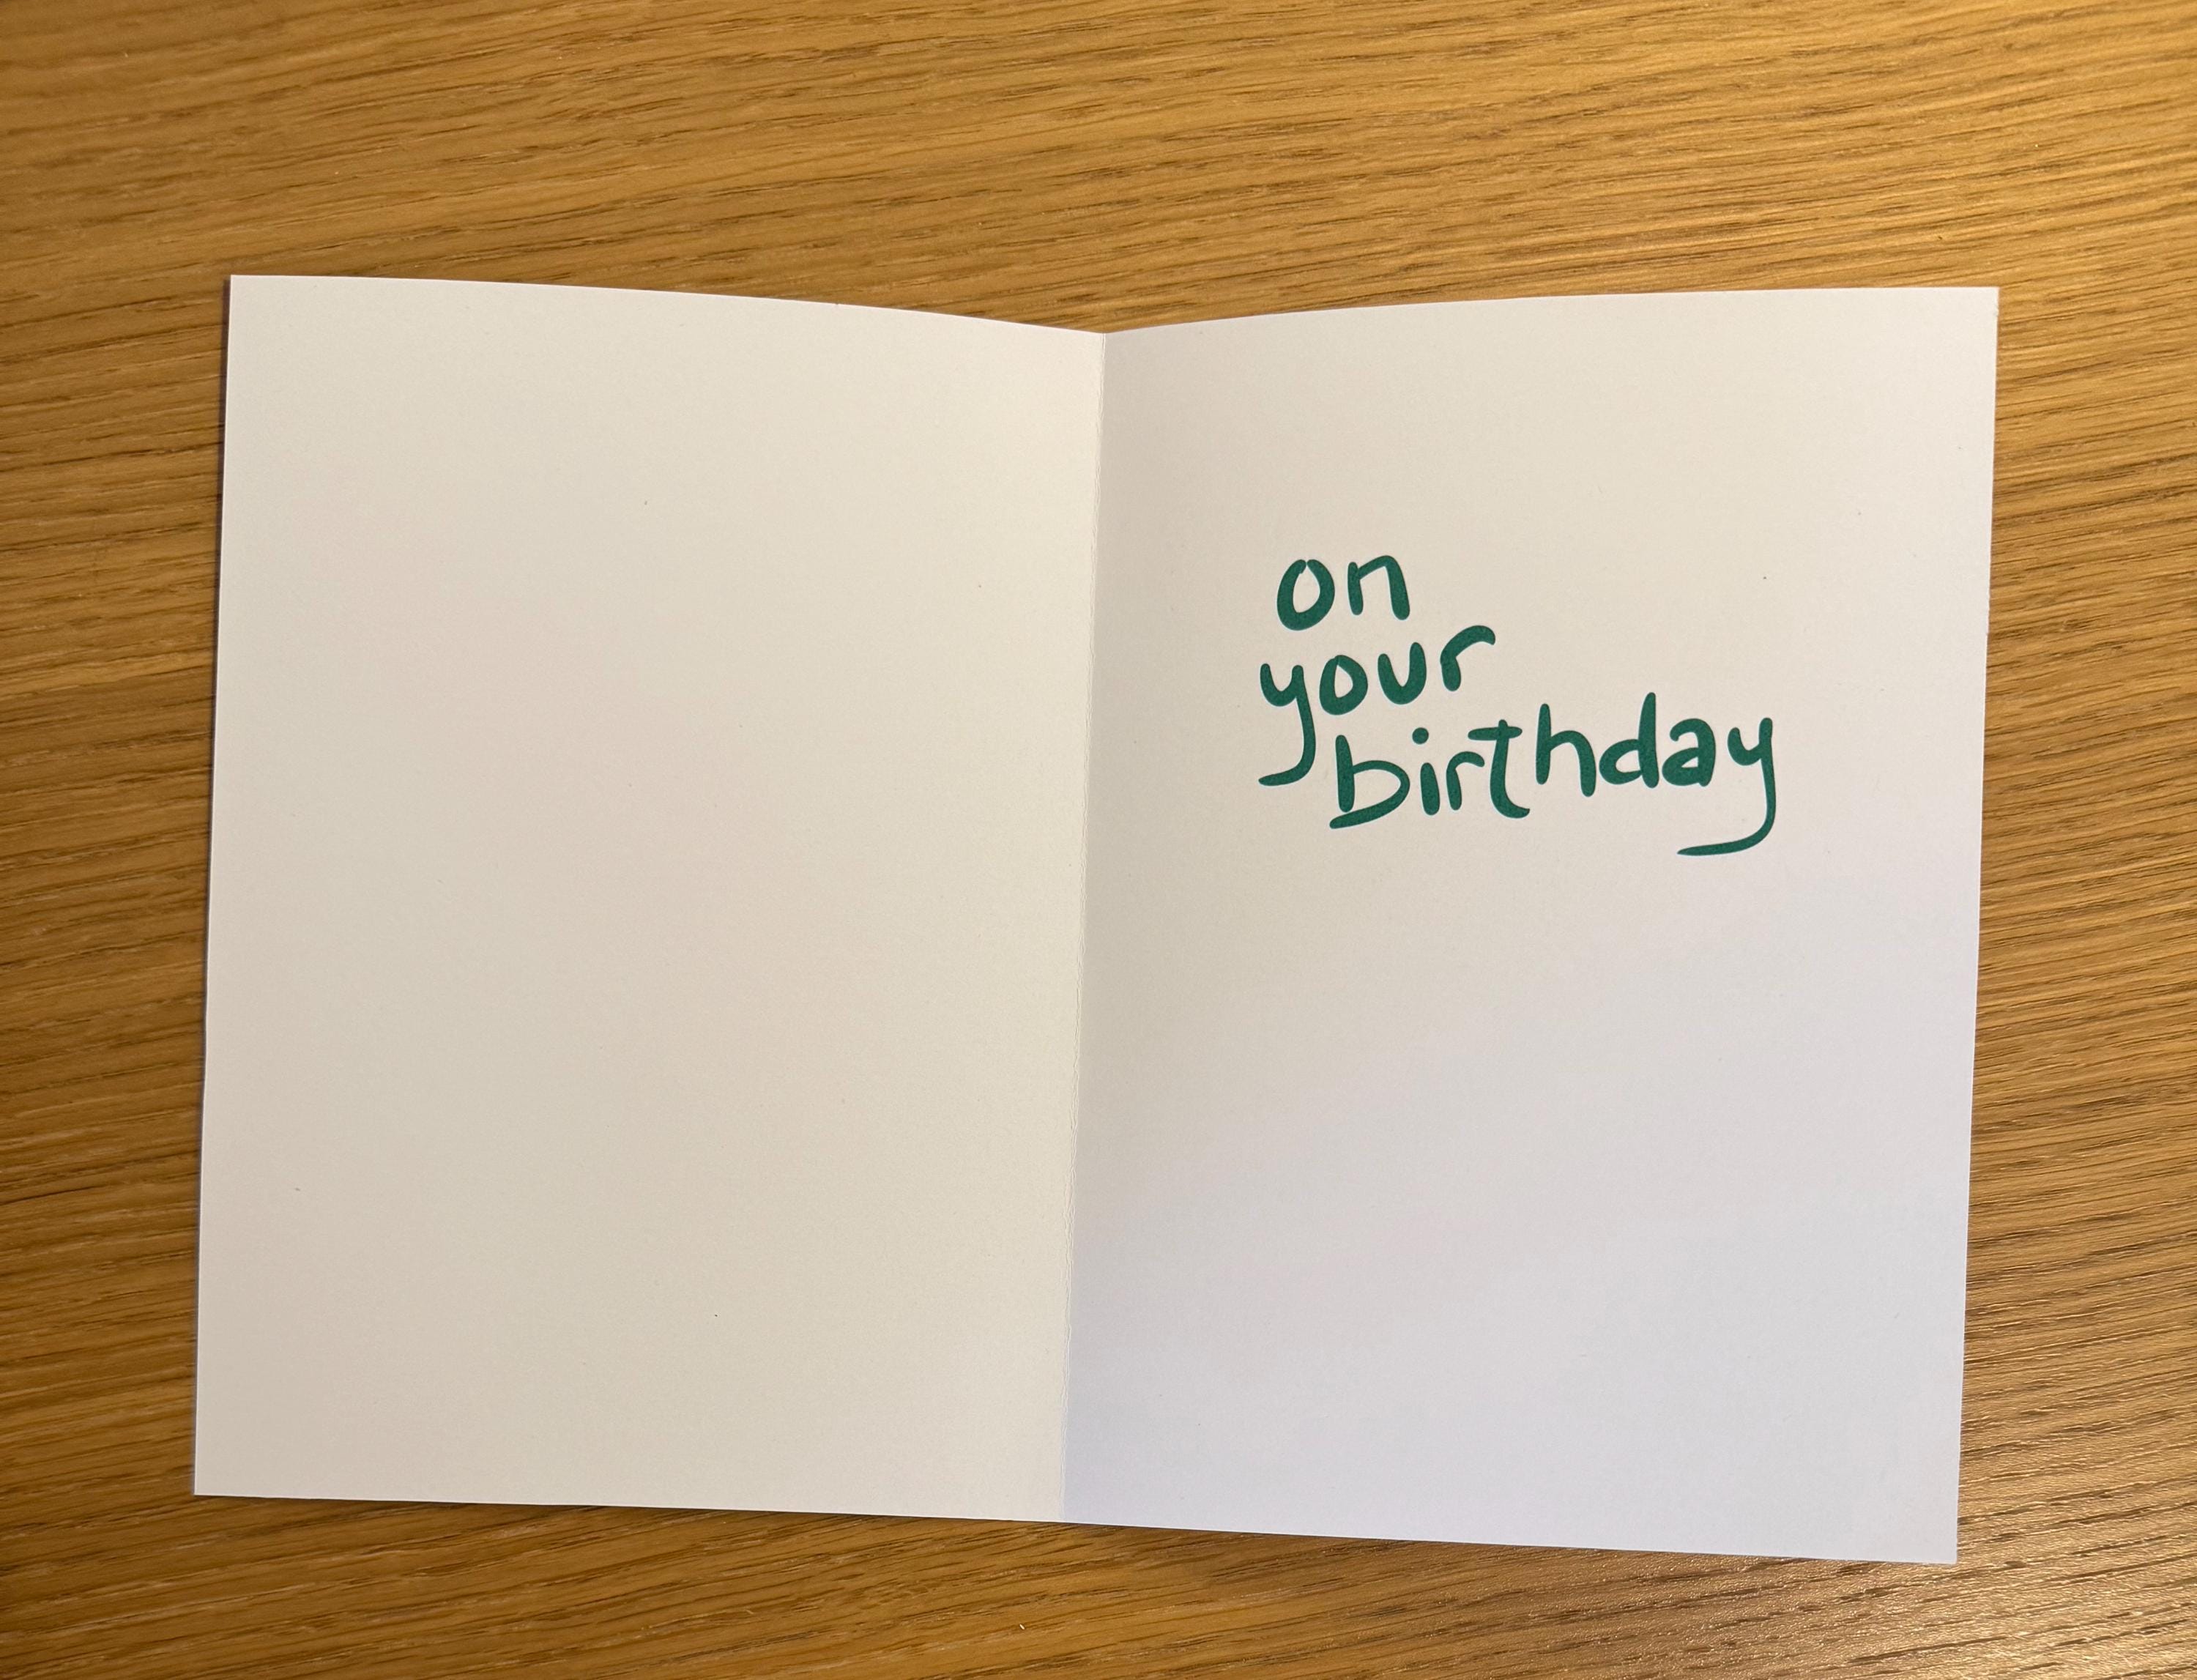 on
your
birthday